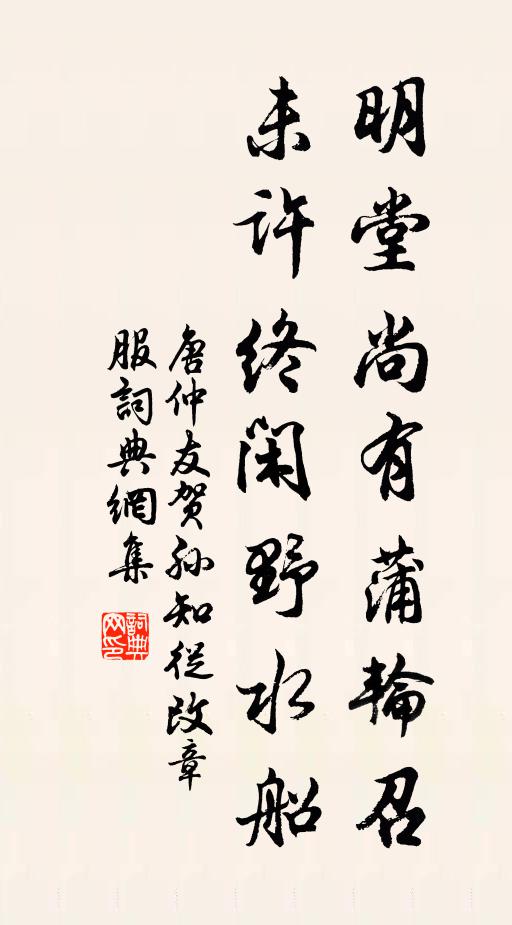 明堂尚有蒲輪召
未許終閑野水船
唐仲友賀孫知從改章
服詞典網集
詞典网印